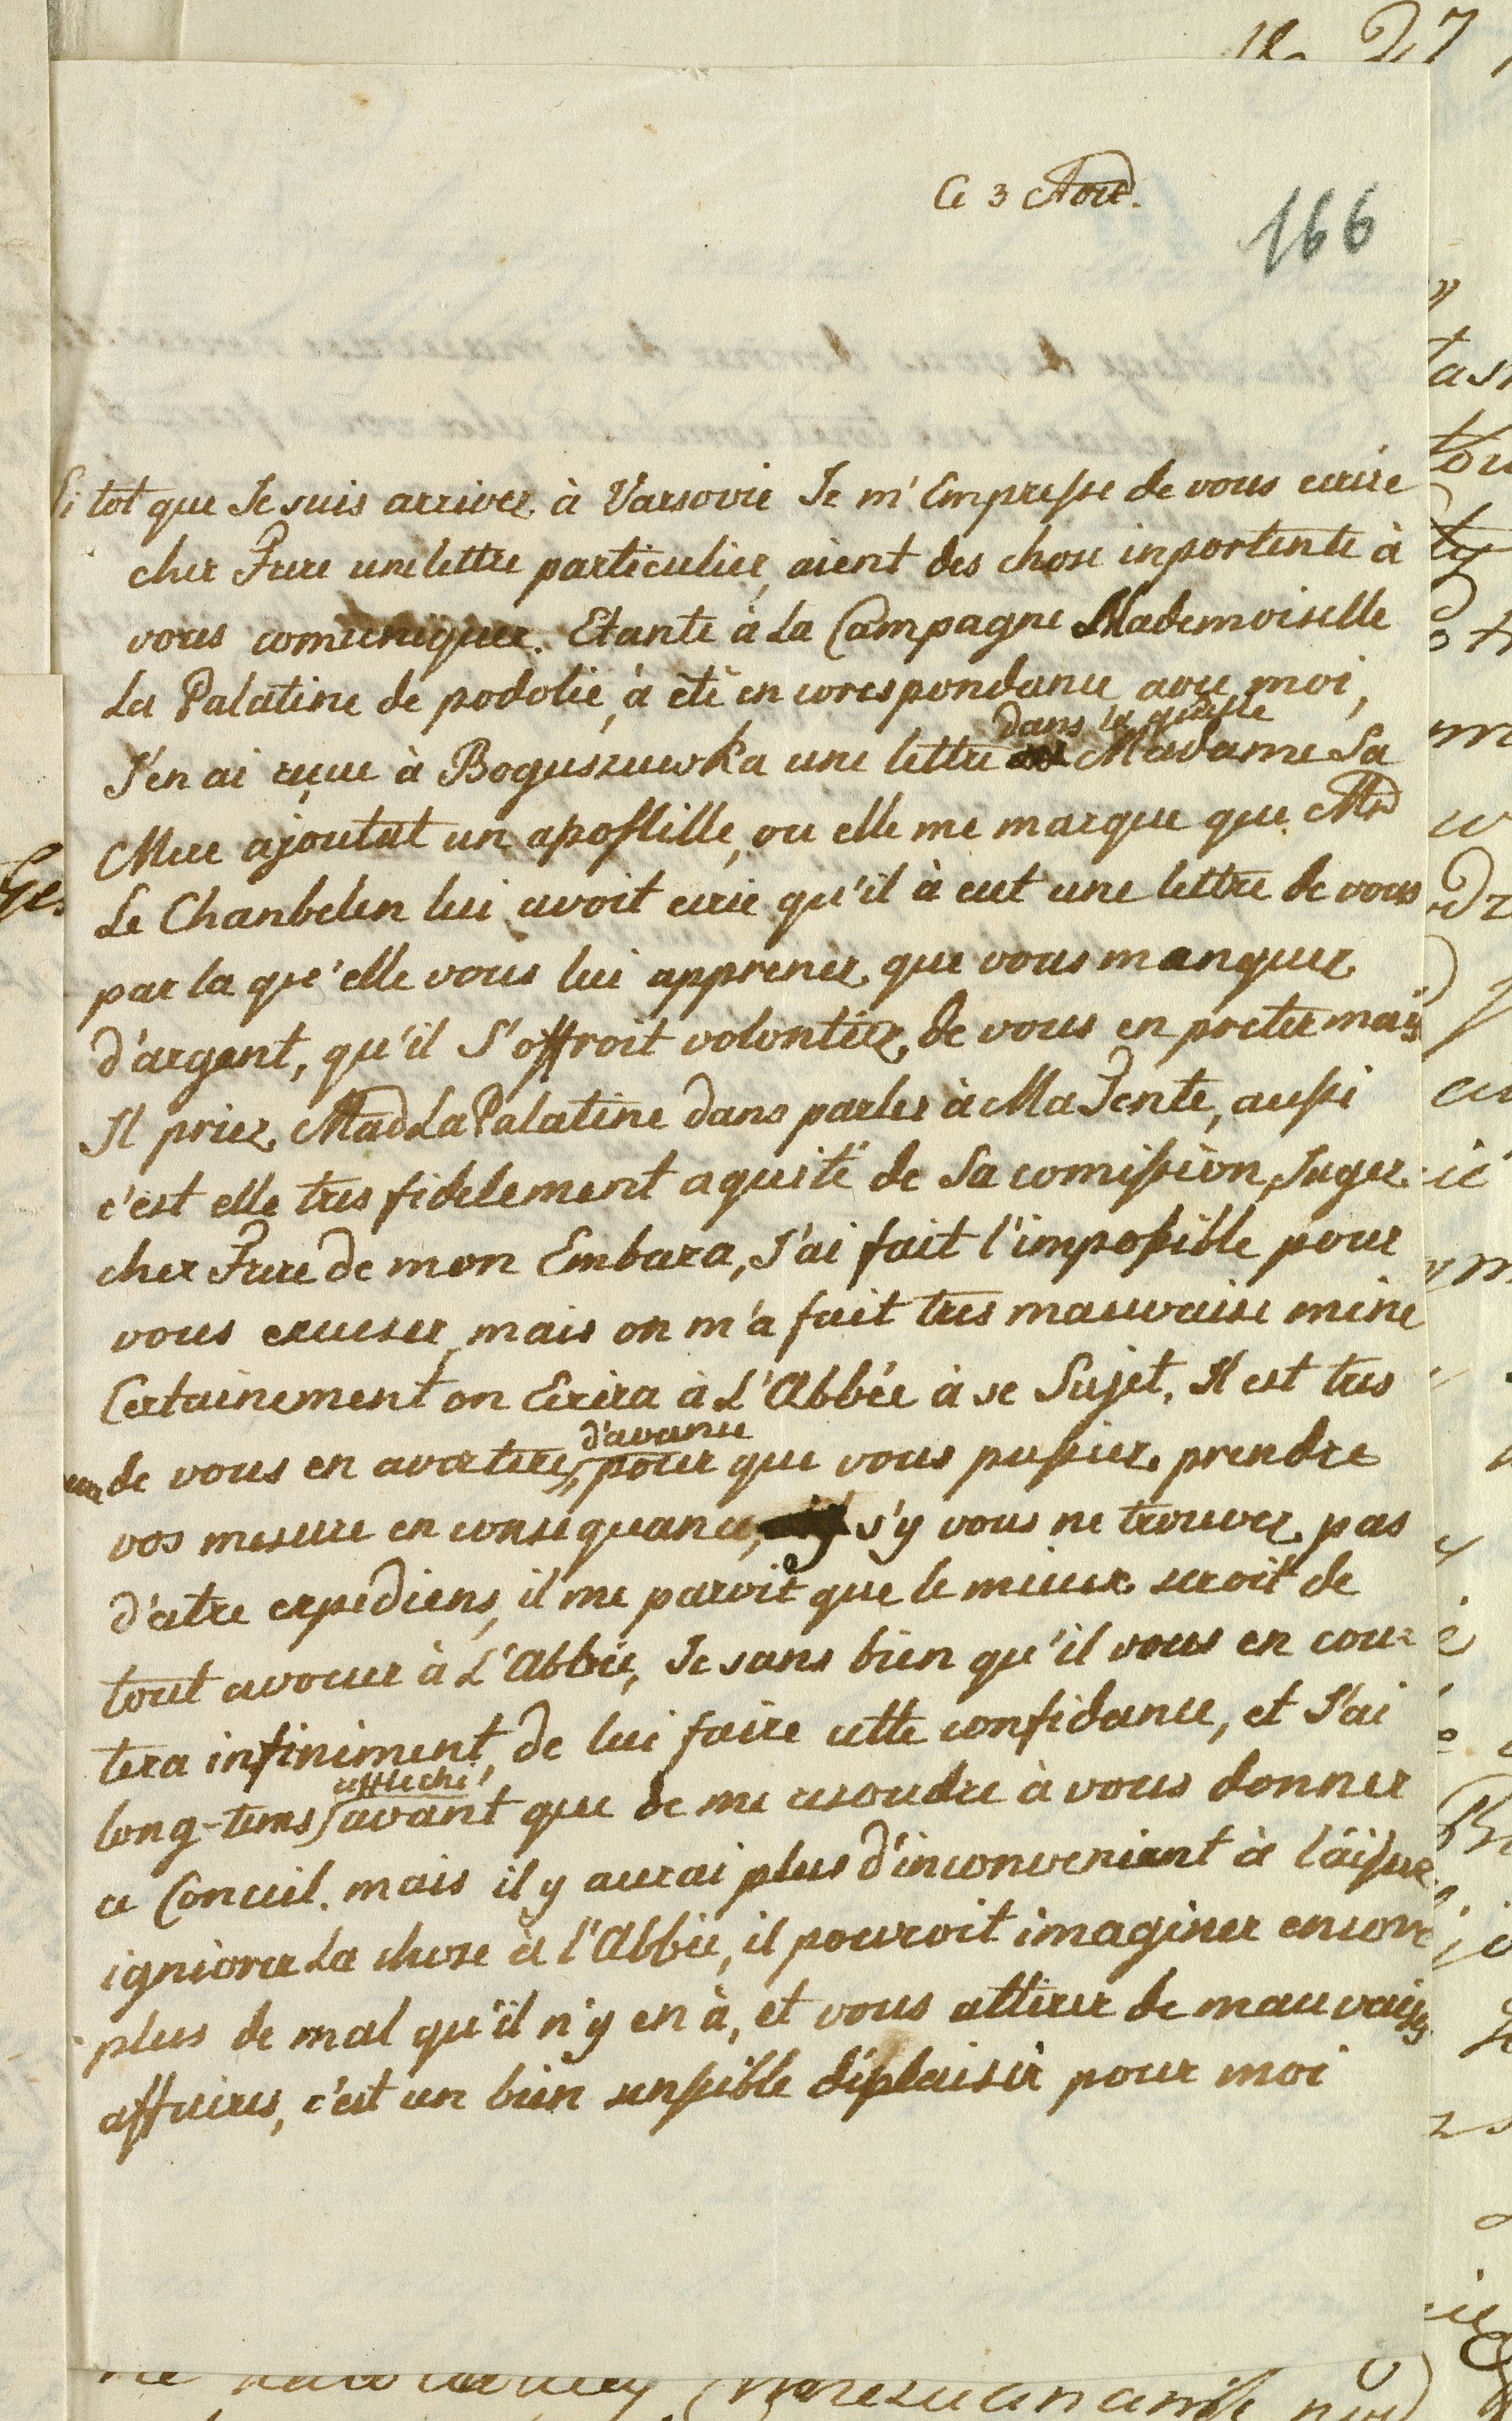 Ce 3 Aout.
166
Si tot que Je suis arrivez à Varsovie Je m'Empresse de vous ecrire
cher Frere une lettre particulier, aient des chose inportente à
vous comuniquer. Etante à La Campagne Mademoiselle
La Palatine de podolie, à été en corespondance avec moi,
J'en ai reçue à Boguszewka une lettre dans la quelle Madame Sa
Mere ajoutat un apostille, ou elle me marque que Mr
Le Chanbelen lui avoit ecrie qu'il à eut une lettre de vous
par la qu'elle vous lui apprenez que vous manquez
d'argent, qu'il S'offroit volontiez de vous en preter mais
Il priez Mad La Palatine dans parler à Ma Tente, aussi
c'est elle tres fidelement aquité de Sa comission, Juger
cher Frere de mon Embara, J'ai fait l'impossible pour
vous excuser mais on m'a fait tres mauvaise mine
Certainement on Ecrira à L'Abbée à se Sujet, Il est tres
de vous en avertire, d'avance pour que vous pussiez prendre
vos mesure en consequance, s'y vous ne trouvez pas
d'atre expediens, il me paroit que le mieux seroit de
tout avouer à L'Abbée, Je sans bien qu'il vous en cou=
tera infiniment de lui faire cette confidance, et J'ai
long-tems refflechi avant que de me resoudre à vous donner
ce Conceil. mais il y aurai plus d'inconveniant à laisser
igniorer La chose à l'Abbée, il pourroit imaginer encore
plus de mal qu'il n'y en à, et vous attirer de mauvaises
affaires, c'est un bien sensible déplaisir pour moi